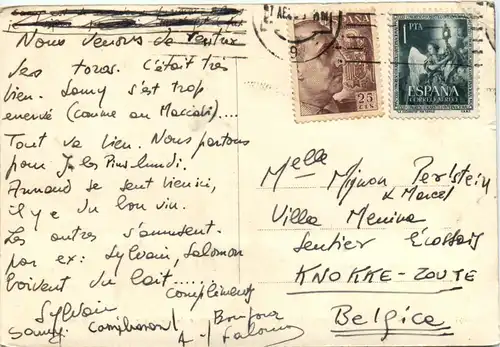 Nous venons de rentrer
des toros. C'était très
bien. Samy s'est trop
énervé (comme au Maccabi)....
Tout va bien. Nous partons
pour J. les Pins lundi.
Armand se sent bien ici,
il y a du bon vin.
Les autres s'amusent.
par ex: Sylvain, Salomon
boivent du lait.......
compliments
Sylvain Bonjour
Samy. Salomon
25
1 PTA
ESPAÑA
Melle
Mignon Perlstein
& Marcel
Villa Menina
Sentier Écossais
KNOKKE-ZOUTE
Belgica